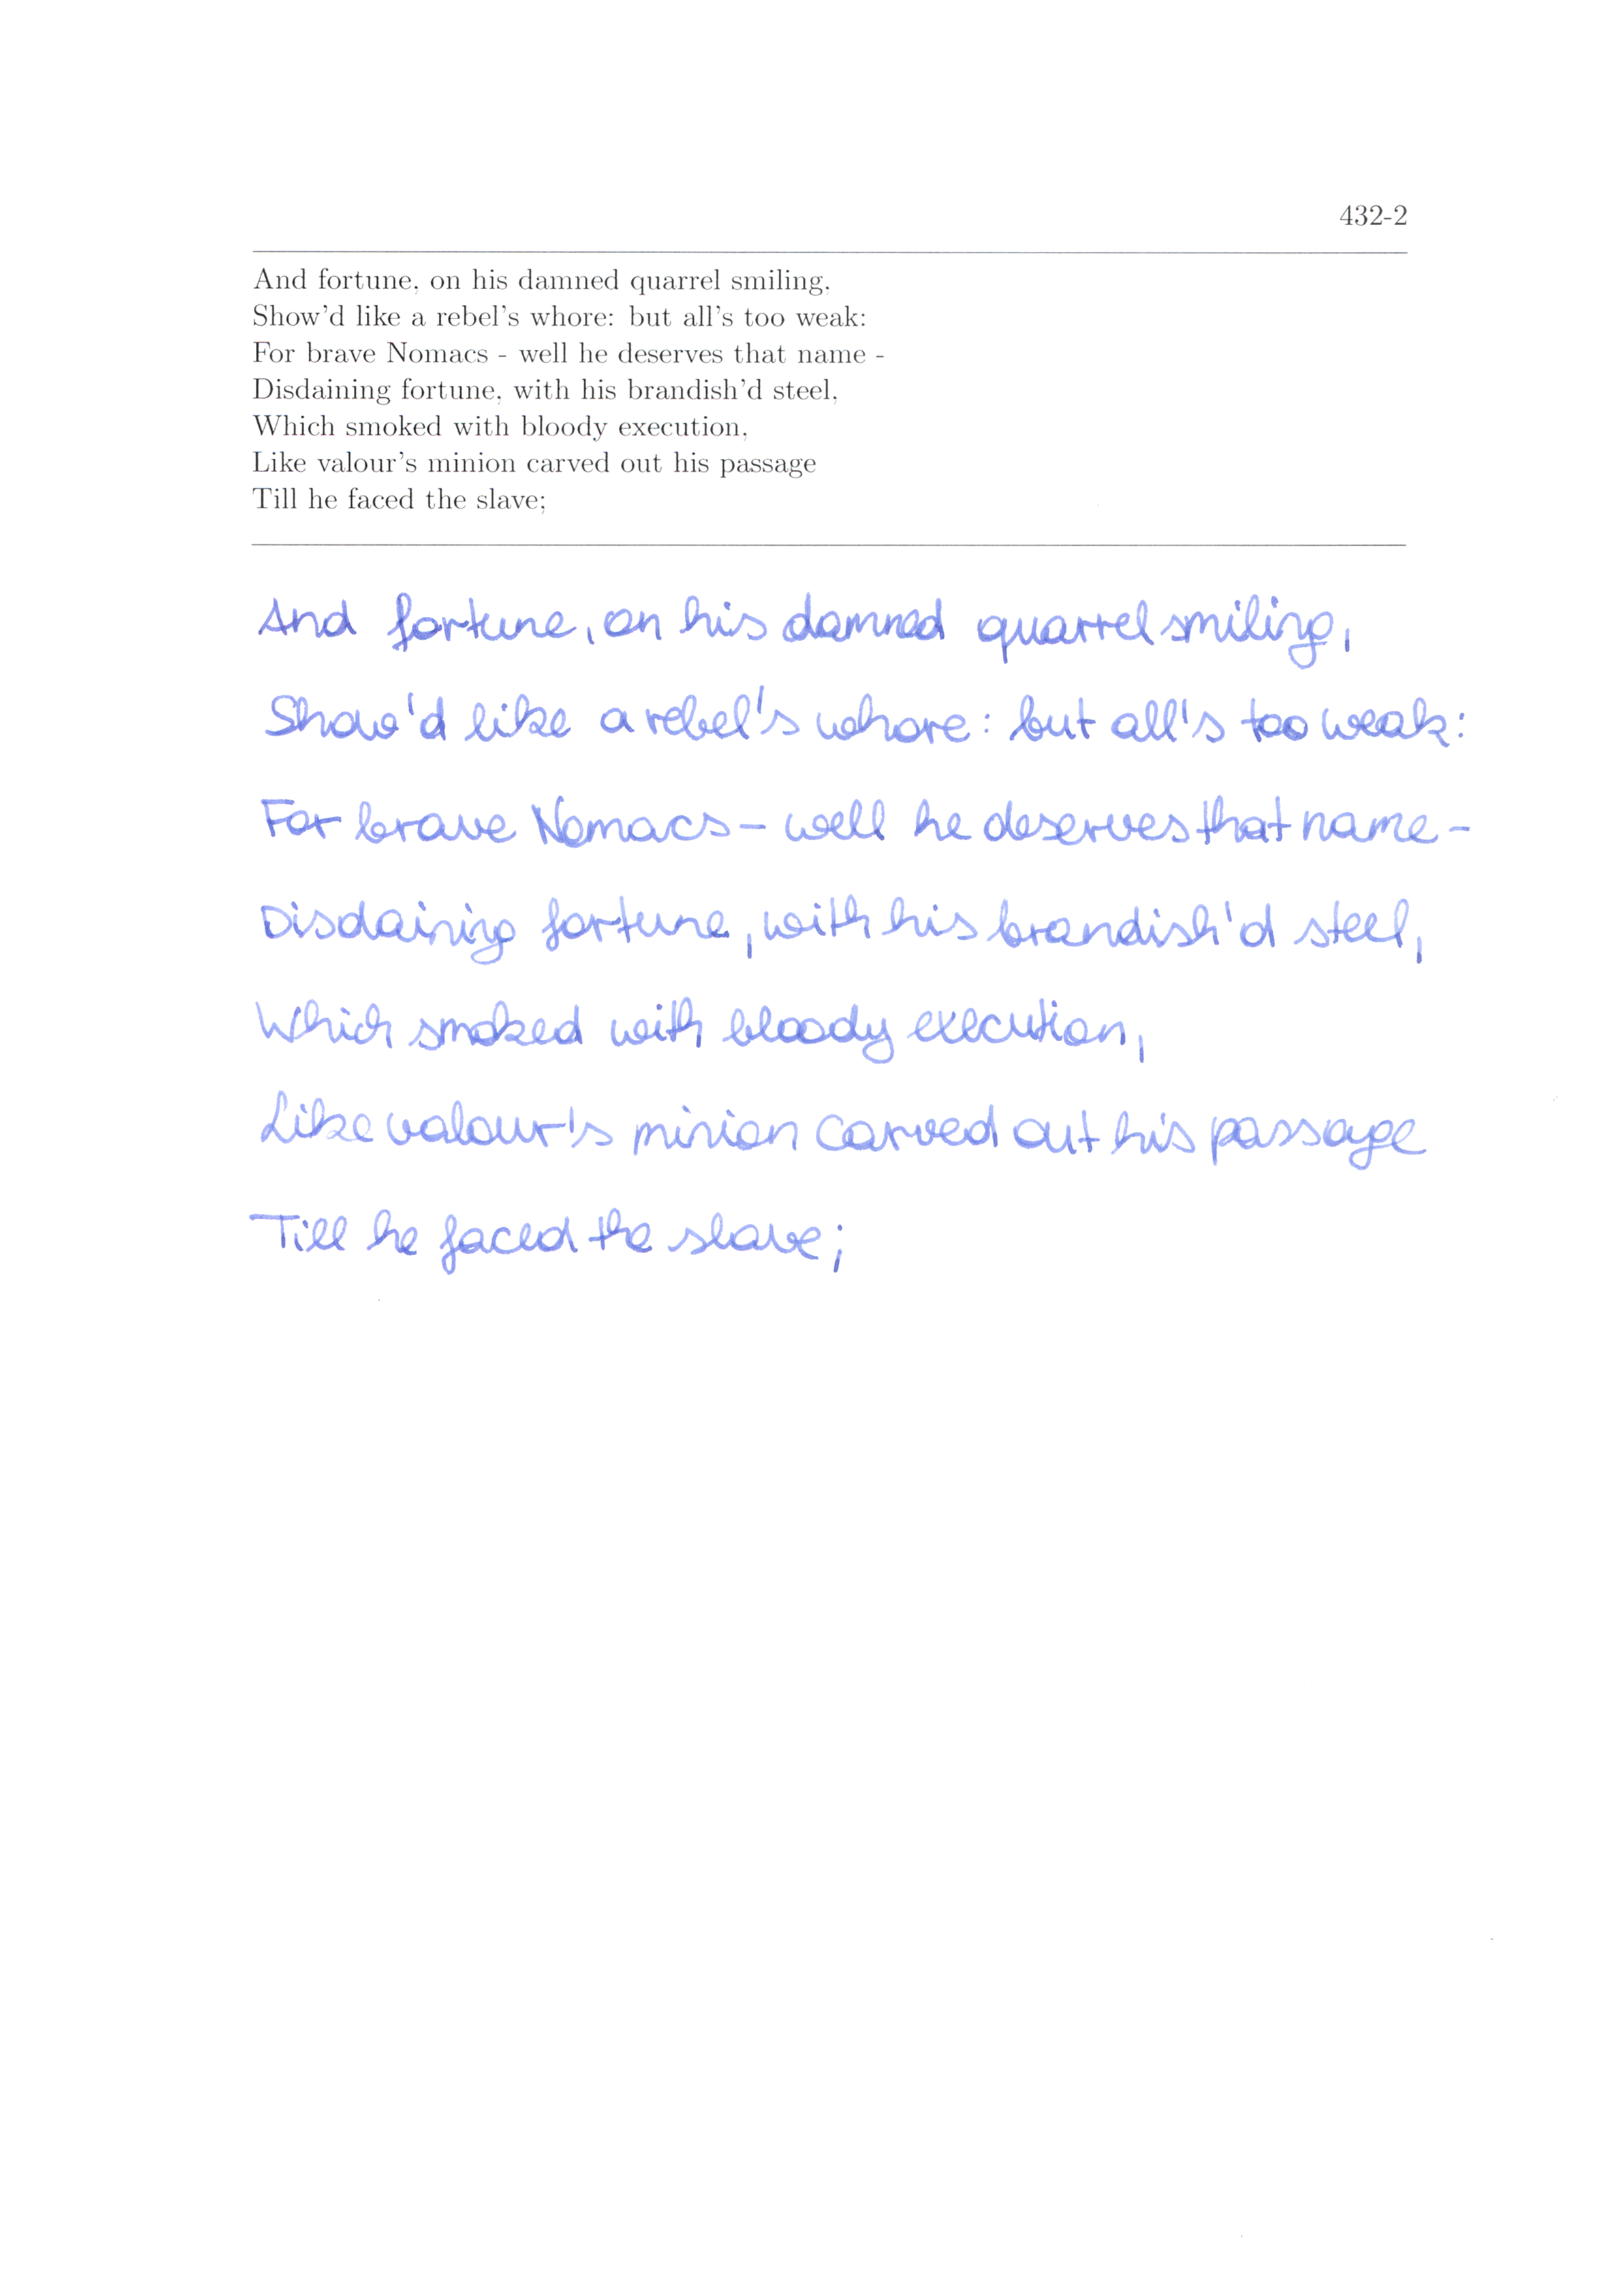 432-2
And fortune, on his damned quarrel smiling,
Show'd like a rebel's whore: but all's too weak:
For brave Nomacs - well he deserves that name -
Disdaining fortune, with his brandish'd steel,
Which smoked with bloody execution,
Like valour's minion carved out his passage
Till he faced the slave;
And fortune, on his damned quarrel smiling,
Show'd like a rebel's whore: but all's too weak:
For brave Nomacs - well he deserves that name -
Disdaining fortune, with his brandish'd steel,
Which smoked with bloody execution,
Like valour's minion carved out his passage
Till he faced the slave;